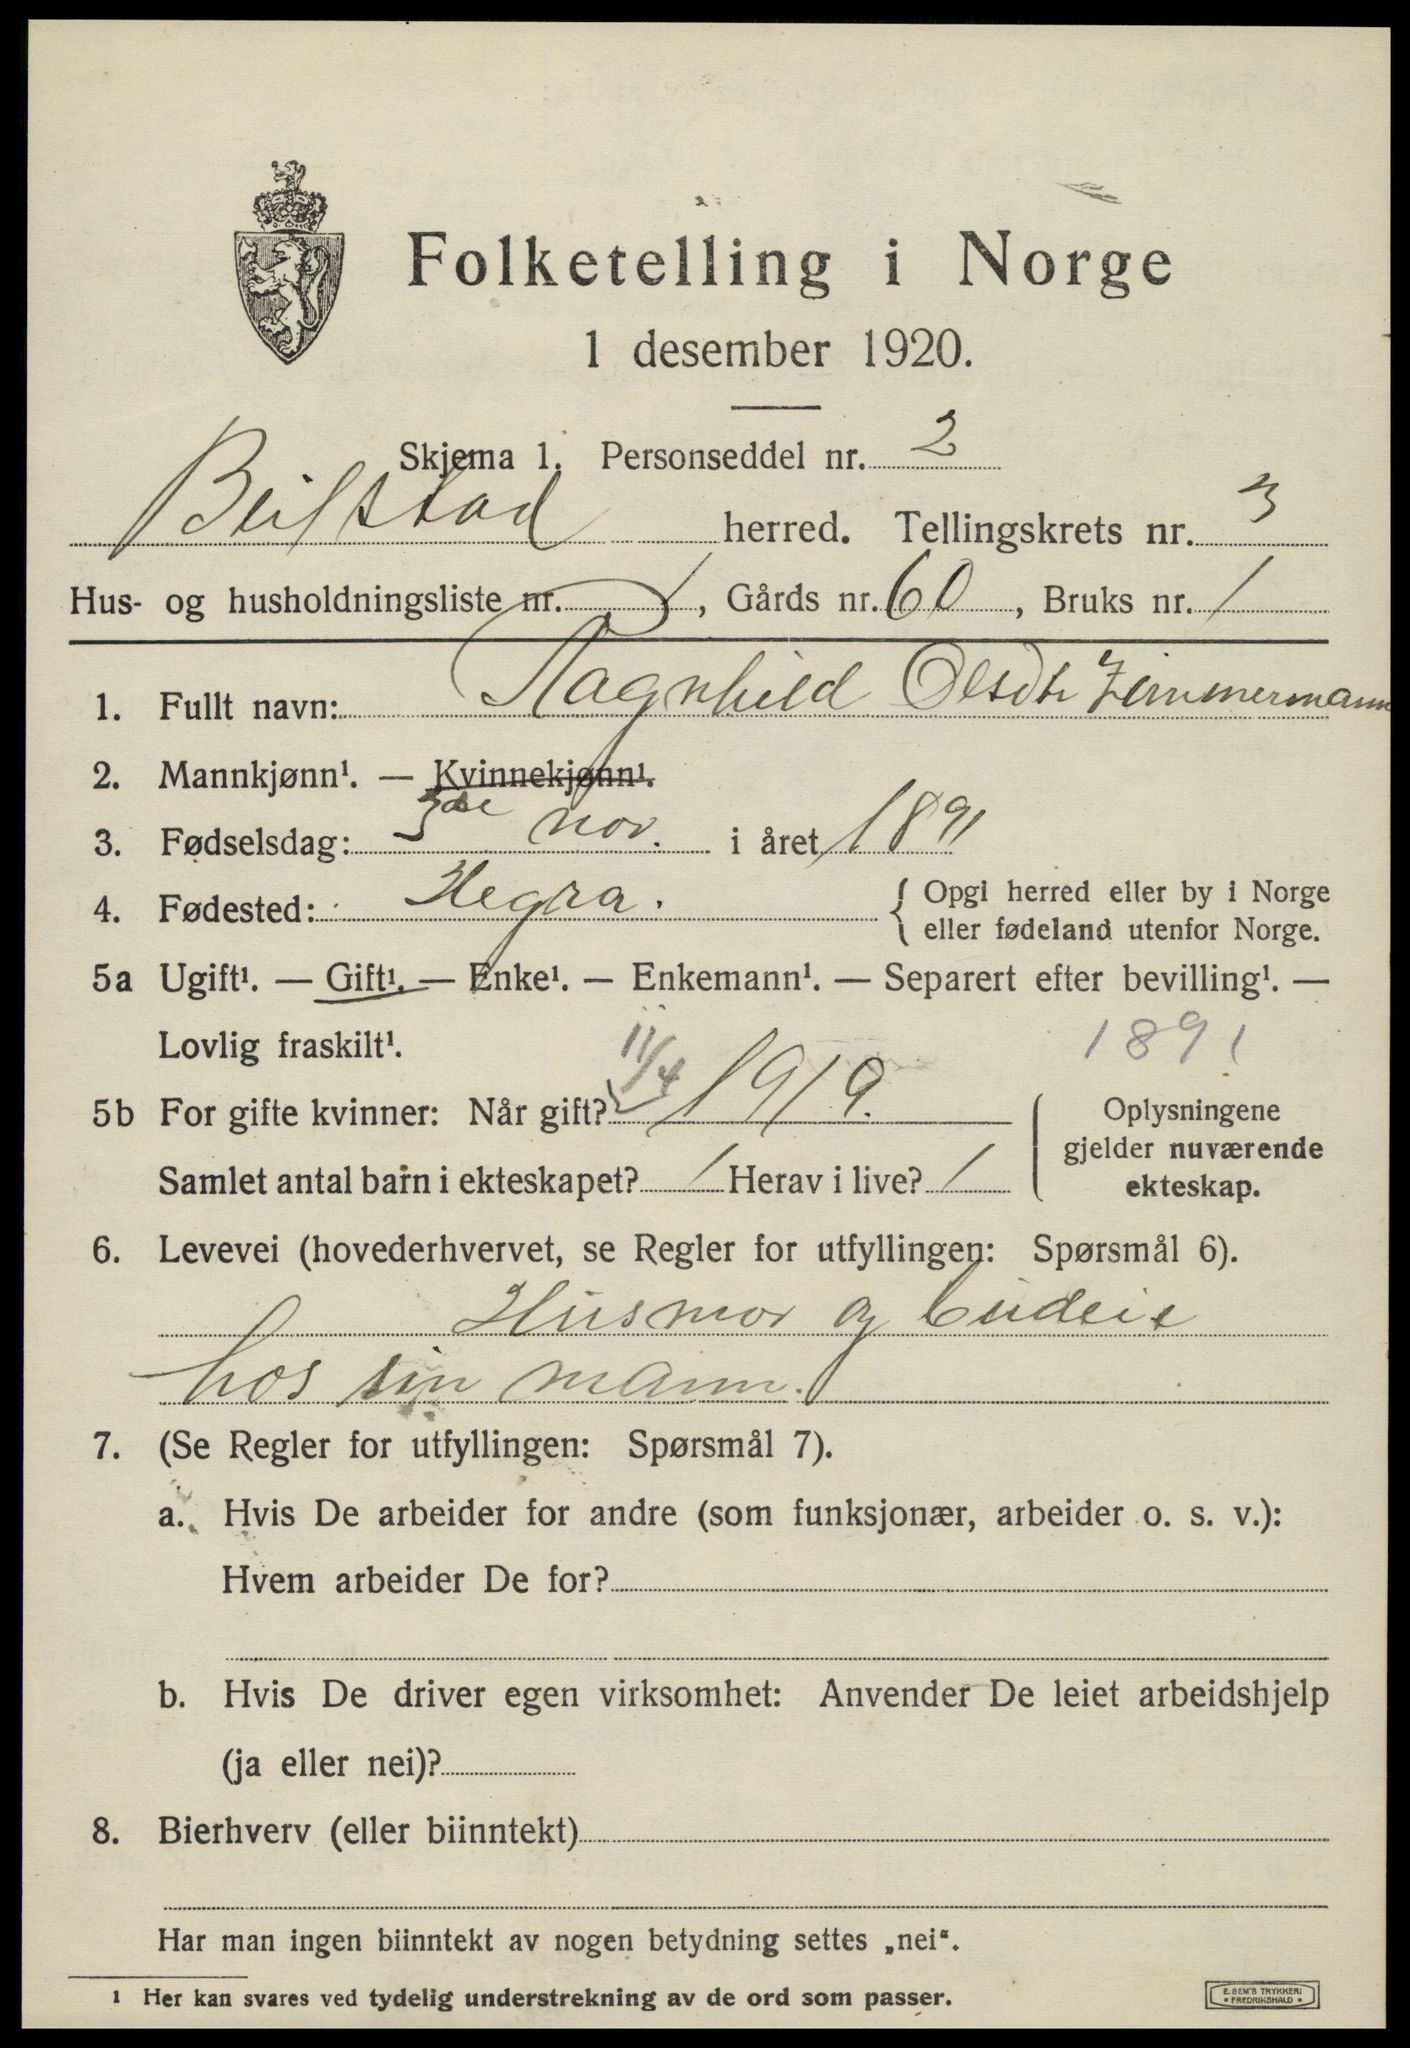 Folketelling i Norge
1 desember 1920.
Skjema 1. Personseddel nr. 2
Beitstad herred. Tellingskrets nr. 3
Hus- og husholdningsliste nr. 1, Gårds nr. 60, Bruks nr. 1
1. Fullt navn: Ragnhild Olsdtr Zimmermann
2. Mannkjønn¹. — Kvinnekjønn¹.
3. Fødselsdag: 3de nov. i året 1891
4. Fødested: Hegra. { Opgi herred eller by i Norge
eller fødeland utenfor Norge.
5a Ugift¹. — Gift¹. — Enke¹. — Enkemann¹. — Separert efter bevilling¹. —
Lovlig fraskilt¹.
1891
5b For gifte kvinner: Når gift? 11/4 1919.
Samlet antal barn i ekteskapet? 1 Herav i live? 1
Oplysningene
gjelder nuværende
ekteskap.
6. Levevei (hovederhvervet, se Regler for utfyllingen: Spørsmål 6).
Husmor og budeie
hos sin mann.
7. (Se Regler for utfyllingen: Spørsmål 7).
a. Hvis De arbeider for andre (som funksjonær, arbeider o. s. v.):
Hvem arbeider De for?
b. Hvis De driver egen virksomhet: Anvender De leiet arbeidshjelp
(ja eller nei)?
8. Bierhverv (eller biinntekt)
Har man ingen biinntekt av nogen betydning settes „nei“.
1 Her kan svares ved tydelig understrekning av de ord som passer.
E. SEM'S TRYKKERI
• FREDRIKSHALD •